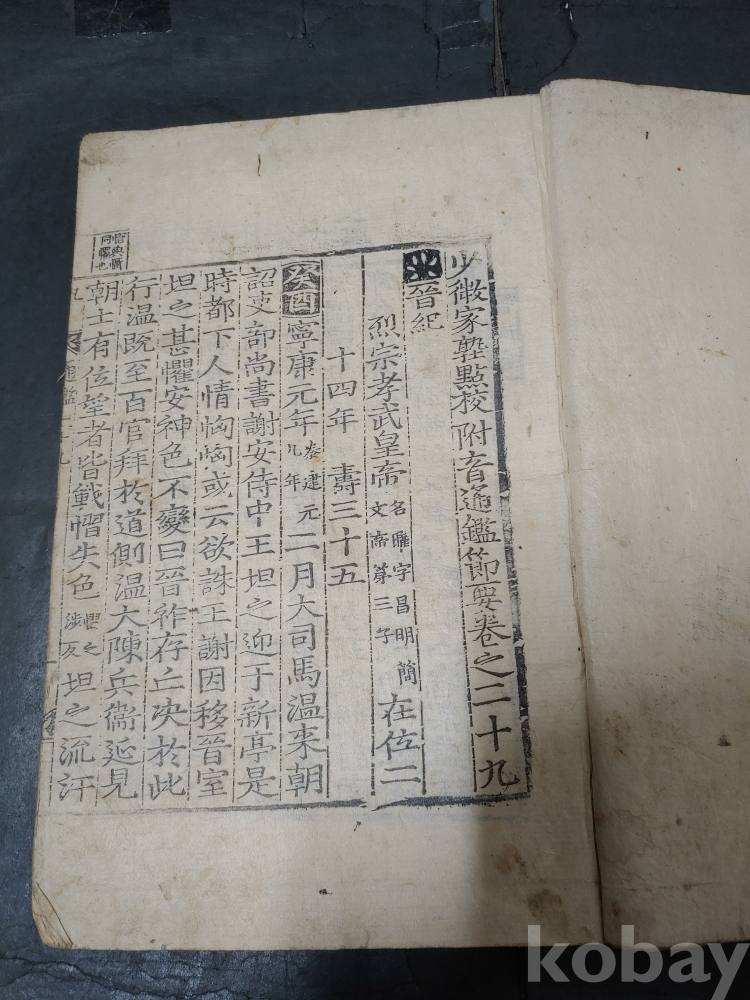 少微家塾點校附音通鑑節要卷之二十九
晉紀
烈宗孝武皇帝 名曜字昌明簡文帝第三子 在位二
十四年 壽三十五
癸酉 寧康元年 秦建元九年 二月大司馬溫来朝
詔吏部尚書謝安侍中王坦之迎于新亭是
時都下人情恟恟或云欲誅王謝因移晉室
坦之甚懼安神色不變曰晉祚存亡决於此
行溫既至百官拜於道側溫大陳兵衞延見
朝士有位望者皆戰慴失色 慴之涉反 坦之流汗
kobay